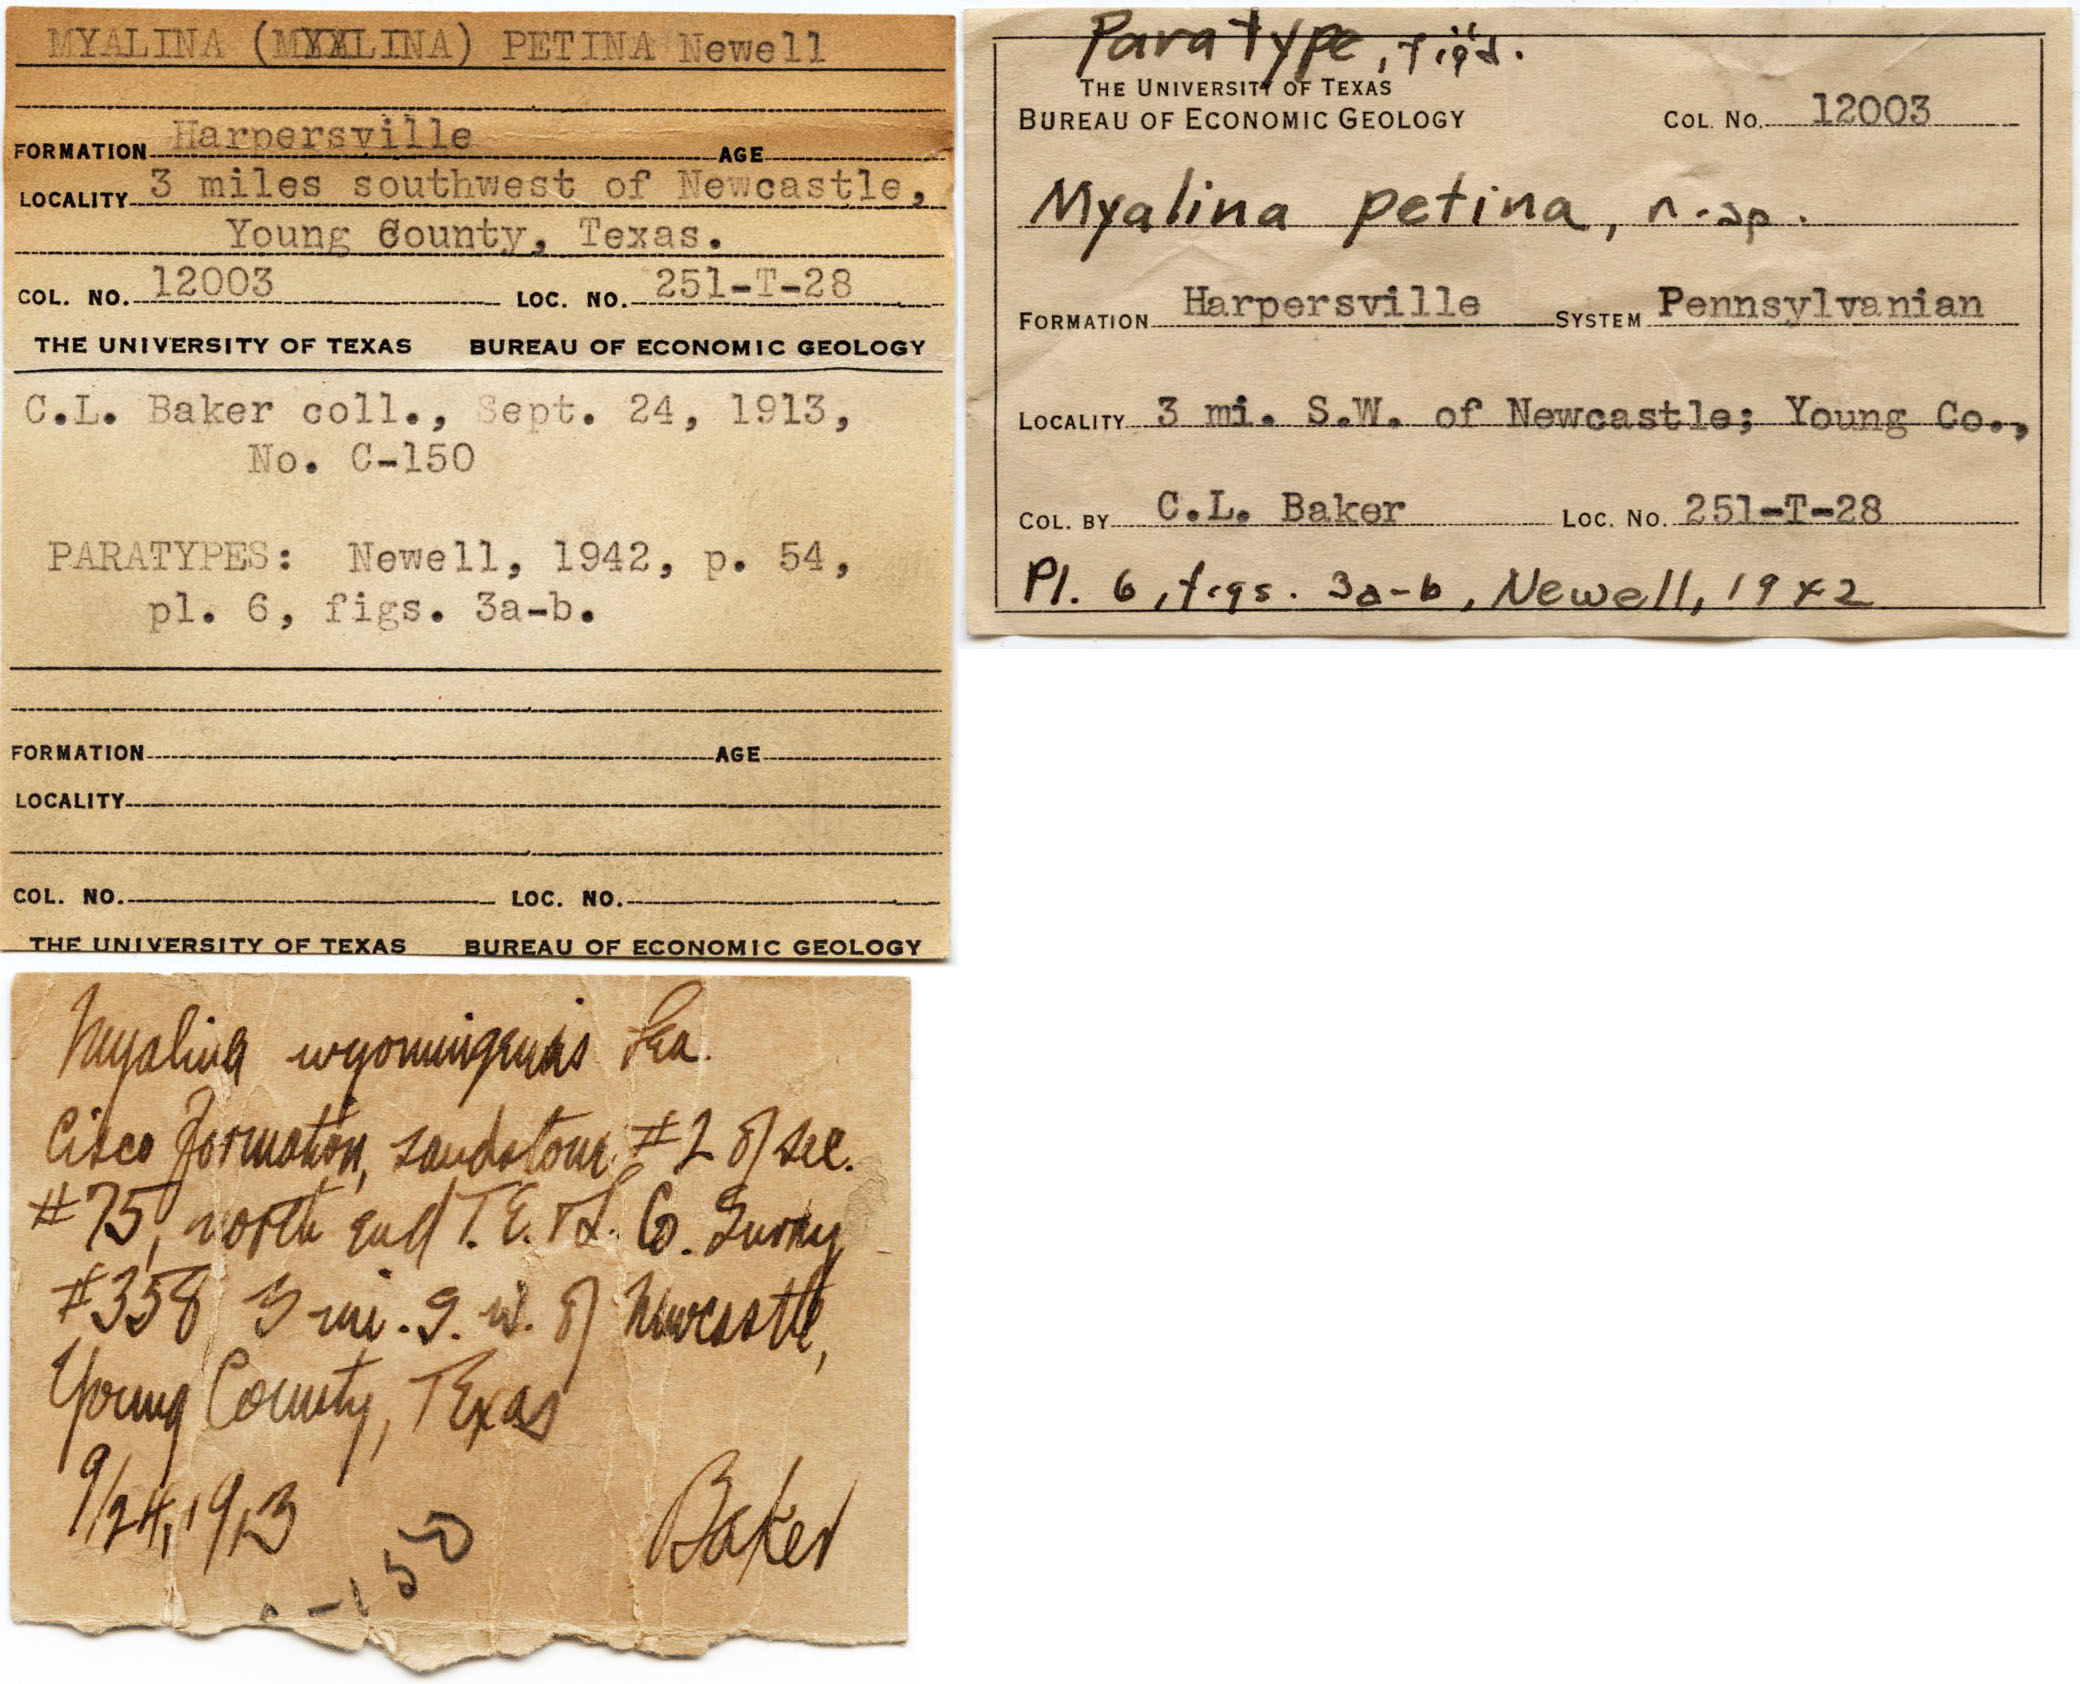 MYALINA (MYALINA) PETINA Newell
FORMATION Harpersville AGE
LOCALITY 3 miles southwest of Newcastle,
Young County, Texas.
COL. NO. 12003 LOC. NO. 251-T-28
THE UNIVERSITY OF TEXAS BUREAU OF ECONOMIC GEOLOGY
C.L. Baker coll., Sept. 24, 1913,
No. C-150
PARATYPES: Newell, 1942, p. 54,
pl. 6, figs. 3a-b.
FORMATION AGE
LOCALITY
COL. NO. LOC. NO.
THE UNIVERSITY OF TEXAS BUREAU OF ECONOMIC GEOLOGY
Paratype, fig'd.
THE UNIVERSITY OF TEXAS
BUREAU OF ECONOMIC GEOLOGY COL. NO. 12003
Myalina petina, n. sp.
FORMATION Harpersville SYSTEM Pennsylvanian
LOCALITY 3 mi. S.W. of Newcastle; Young Co.,
COL. BY C.L. Baker LOC. NO. 251-T-28
Pl. 6, figs. 3a-b, Newell, 1942
Myalina wyomingensis Lea.
Cisco formation, sandstone #2 of sec.
#75, north end T. E. & L. Co. Survey
#358 3 mi. S. W. of Newcastle,
Young County, Texas
9/24, 1913 Baker
-150